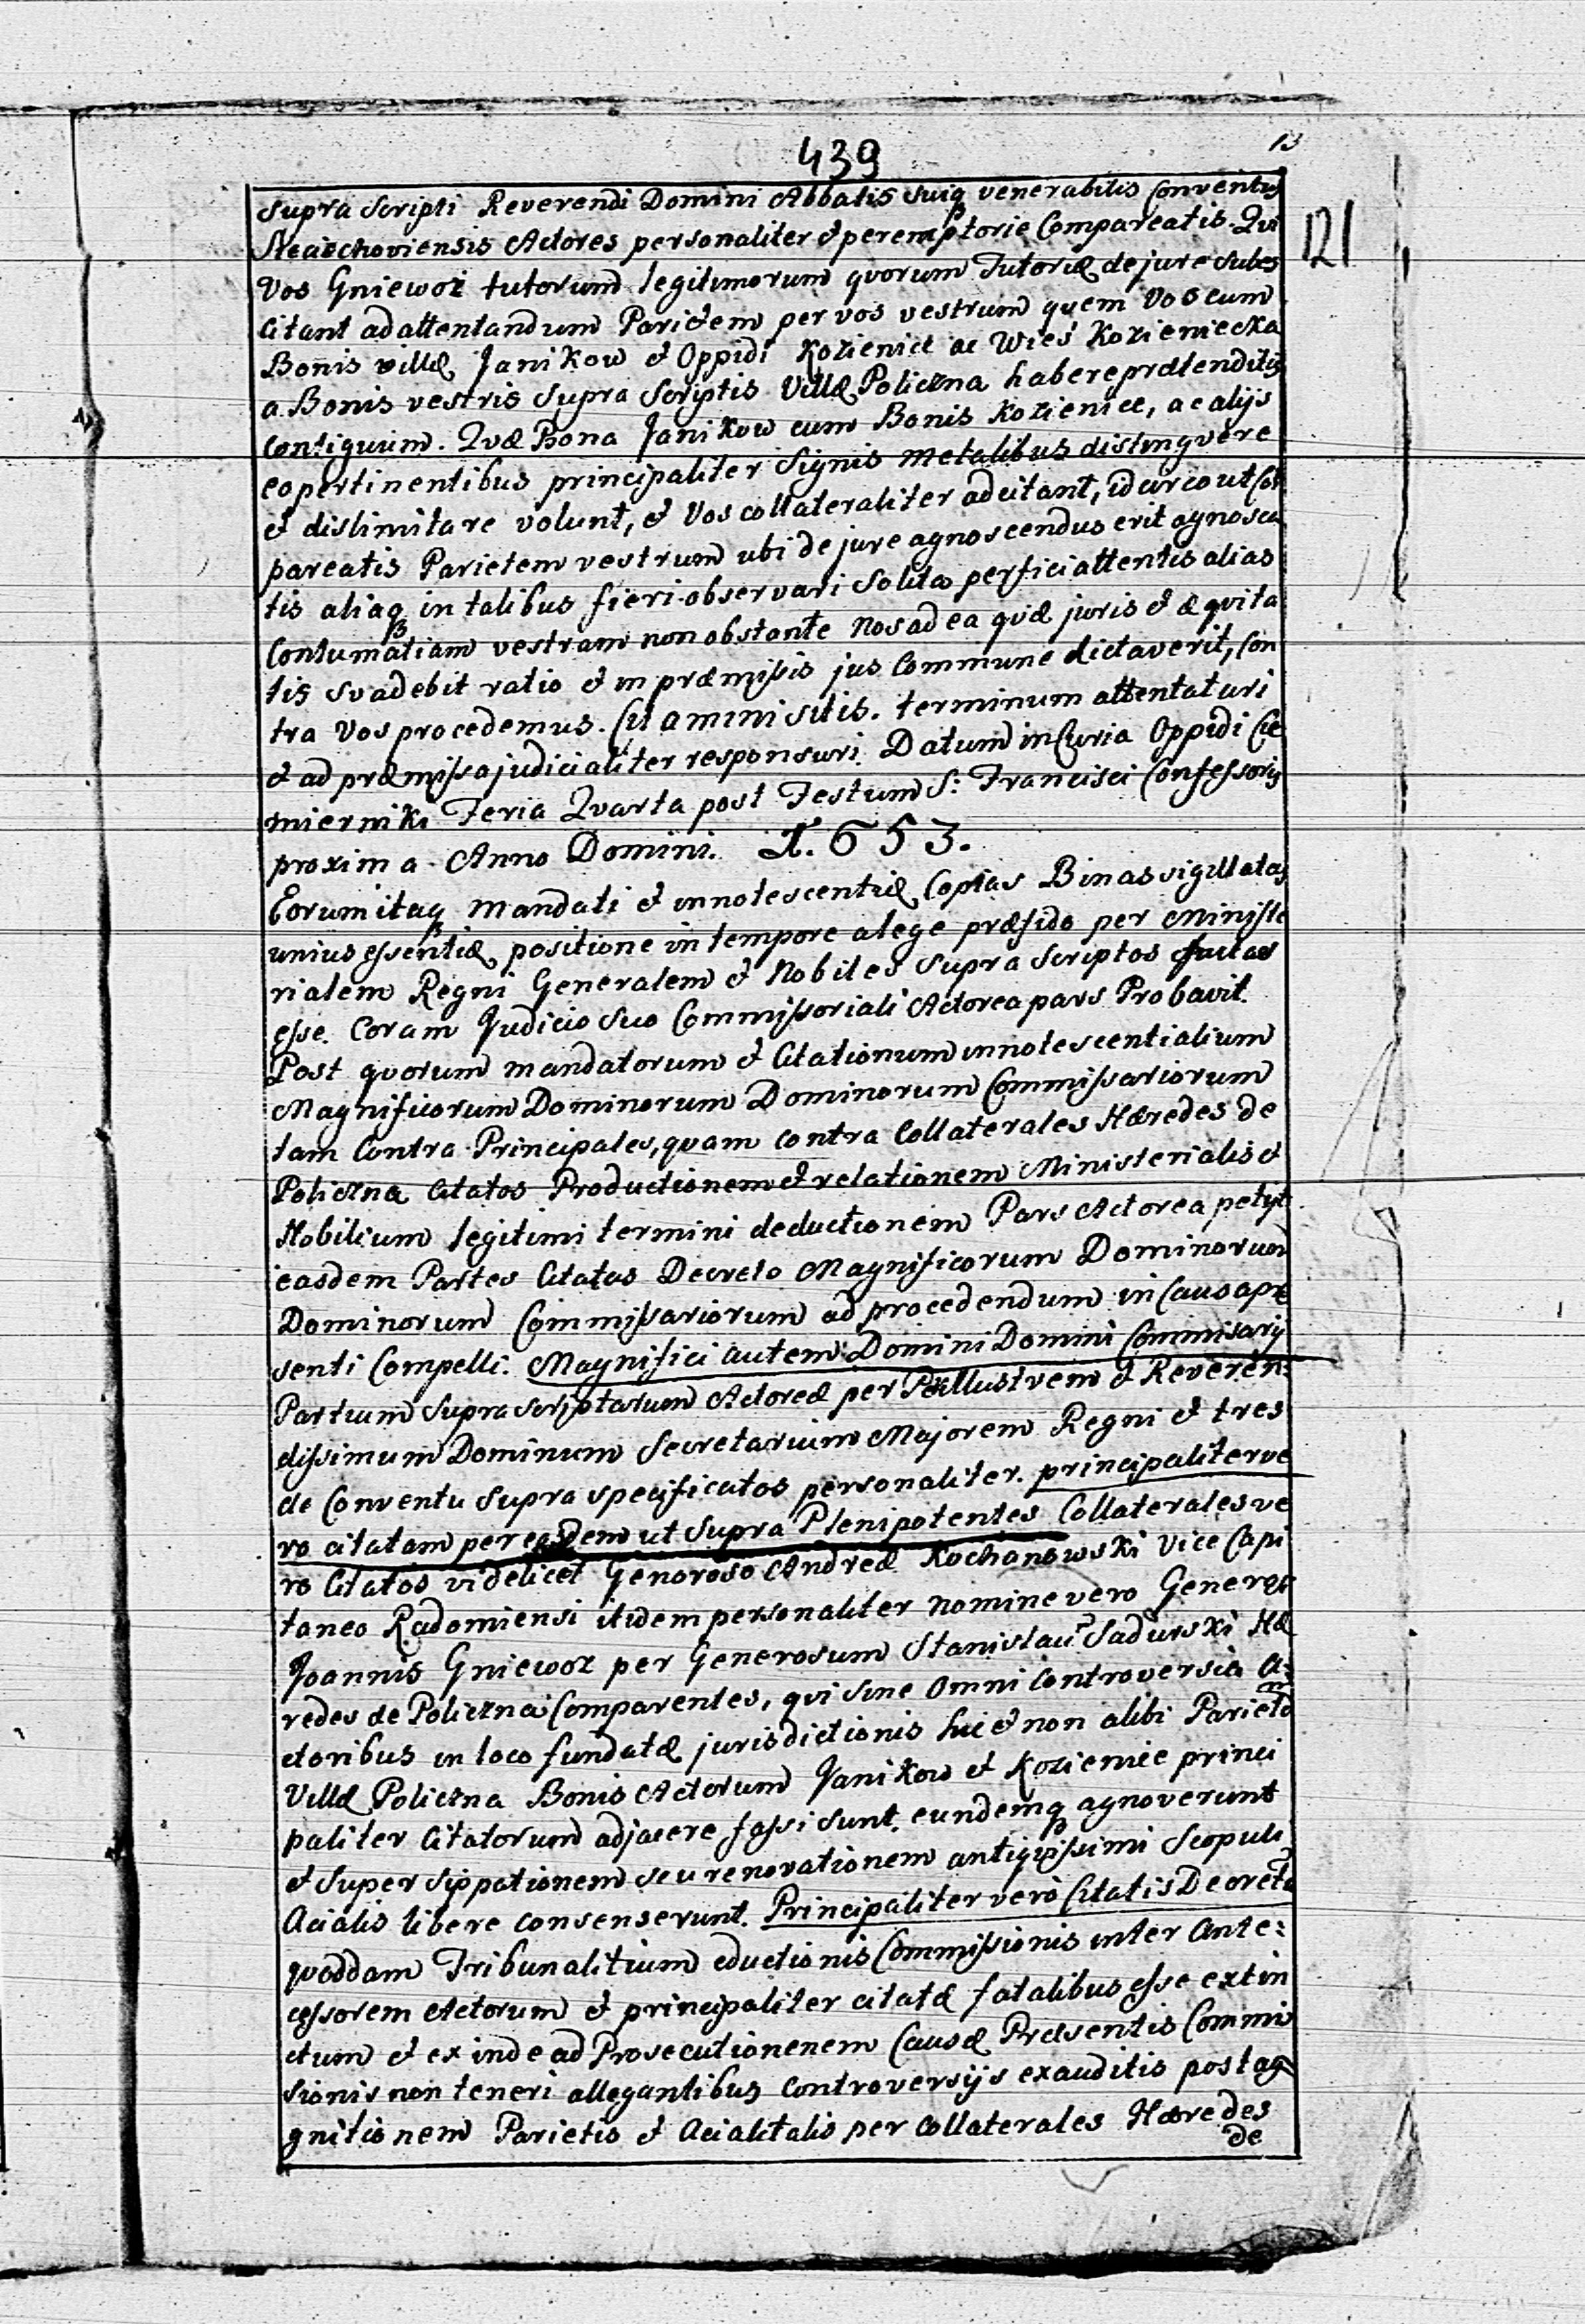 439
13
121
supra Scripti Reverendi Domini Abbatis Suiq venerabilis Conventus
Sieciechoviensis Actores personaliter & peremptorie Compareatis. Qui
Vos Gniewoż tutorum legitimorum quorum Tutoriæ de jure Subes
Citant ad attentandum Parietem per vos vestrum quem Vos cum
Bonis villæ Janikow & Oppidi Kozienice ac Wieś Kozieniecka
a Bonis vestris Supra Scriptis Villæ Policzna habere prætenditis
Contiguum. Quæ Bona Janikow cum Bonis Kozienice, ac alijs
eo pertinentibus principaliter Signis metalibus distinguere
& dislimitare volunt, & Vos collateraliter adcitant, idcirco ut Com
pareatis Parietem vestrum ubi de jure agnoscendus erit agnosca
tis aliaq in talibus fieri observari Solita perfici attentis alias
Contumatiam vestram non obstante Nos ad ea quæ juris & æquita
tis svadebit ratio & in præmissis jus Commune dictaverit, Con
tra Vos procedemus. Sitamini sitis. terminum attentaturi
& ad præmissa judicialiter responsuri. Datum in Curia Oppidi Cie
mierniki Feria Quarta post Festum S: Francisci Confessoris
proxima Anno Domini. 1.653.
Eorumitaq mandati & innotescentiæ Copias Binas sigillatas
unius essentiæ positione in tempore a lege præfixo per Ministe
rialem Regni Generalem & Nobiles Supra Scriptos factas
esse. Coram Judicio Suo Commissoriali Actorea pars Probavit.
Post quorum mandatorum & Citationum innotescentialium
Magnificorum Dominorum Dominorum Commissariorum
tam Contra Principales, quam contra Collaterales Hæredes de
Policzna Citatos Productionem & relationem Ministerialis &
Nobilium legitimi termini deductionem Pars Actorea petijt
easdem Partes Citatas Decreto Magnificorum Dominorum
Dominorum Commissariorum ad procedendum in Causa præ
senti Compelli. Magnifici autem Domini Domini Commisarij
Partium Supra Scriptarum Actoreæ per Perillustrem & Reveren:
dissimum Dominum Secretarium Majorem Regni & tres
de Conventu Supra specificatos personaliter. principaliter ve
ro citatam per eosdem ut Supra Plenipotentes Collaterales ve
ro Citatos videlicet Generoso Andreæ Kochanowski Vice Capi
taneo Radomiensi itidem personaliter nomine vero Generosi
Joannis Gniewoz per Generosum Stanislaum Sadurski Hæ
redes de Policzna Comparentes, qui sine omni Controversia A:
ctoribus in loco fundatæ jurisdictionis hic & non alibi Parietem
Villæ Policzna Bonis Actorum Janikow & Kozienice princi
paliter Citatorum adjacere fassi sunt, eundemq agnoverunt
& Super Sippationem seu renovationem antiquissimi Scopuli
Acialis libere consenserunt. Principaliter vero Citatis Decreto
quoddam Tribunalitium eductionis Commissionis inter Ante:
cessorem Actorum & principaliter citatæ fatalibus esse extin
ctum & ex inde ad Prosecutionenem Causæ Præsentis Commis
sionis non teneri allegantibus Controversijs exauditis post ag
gnitionem Parietis & Acialitalis per Collaterales Hæredes
de